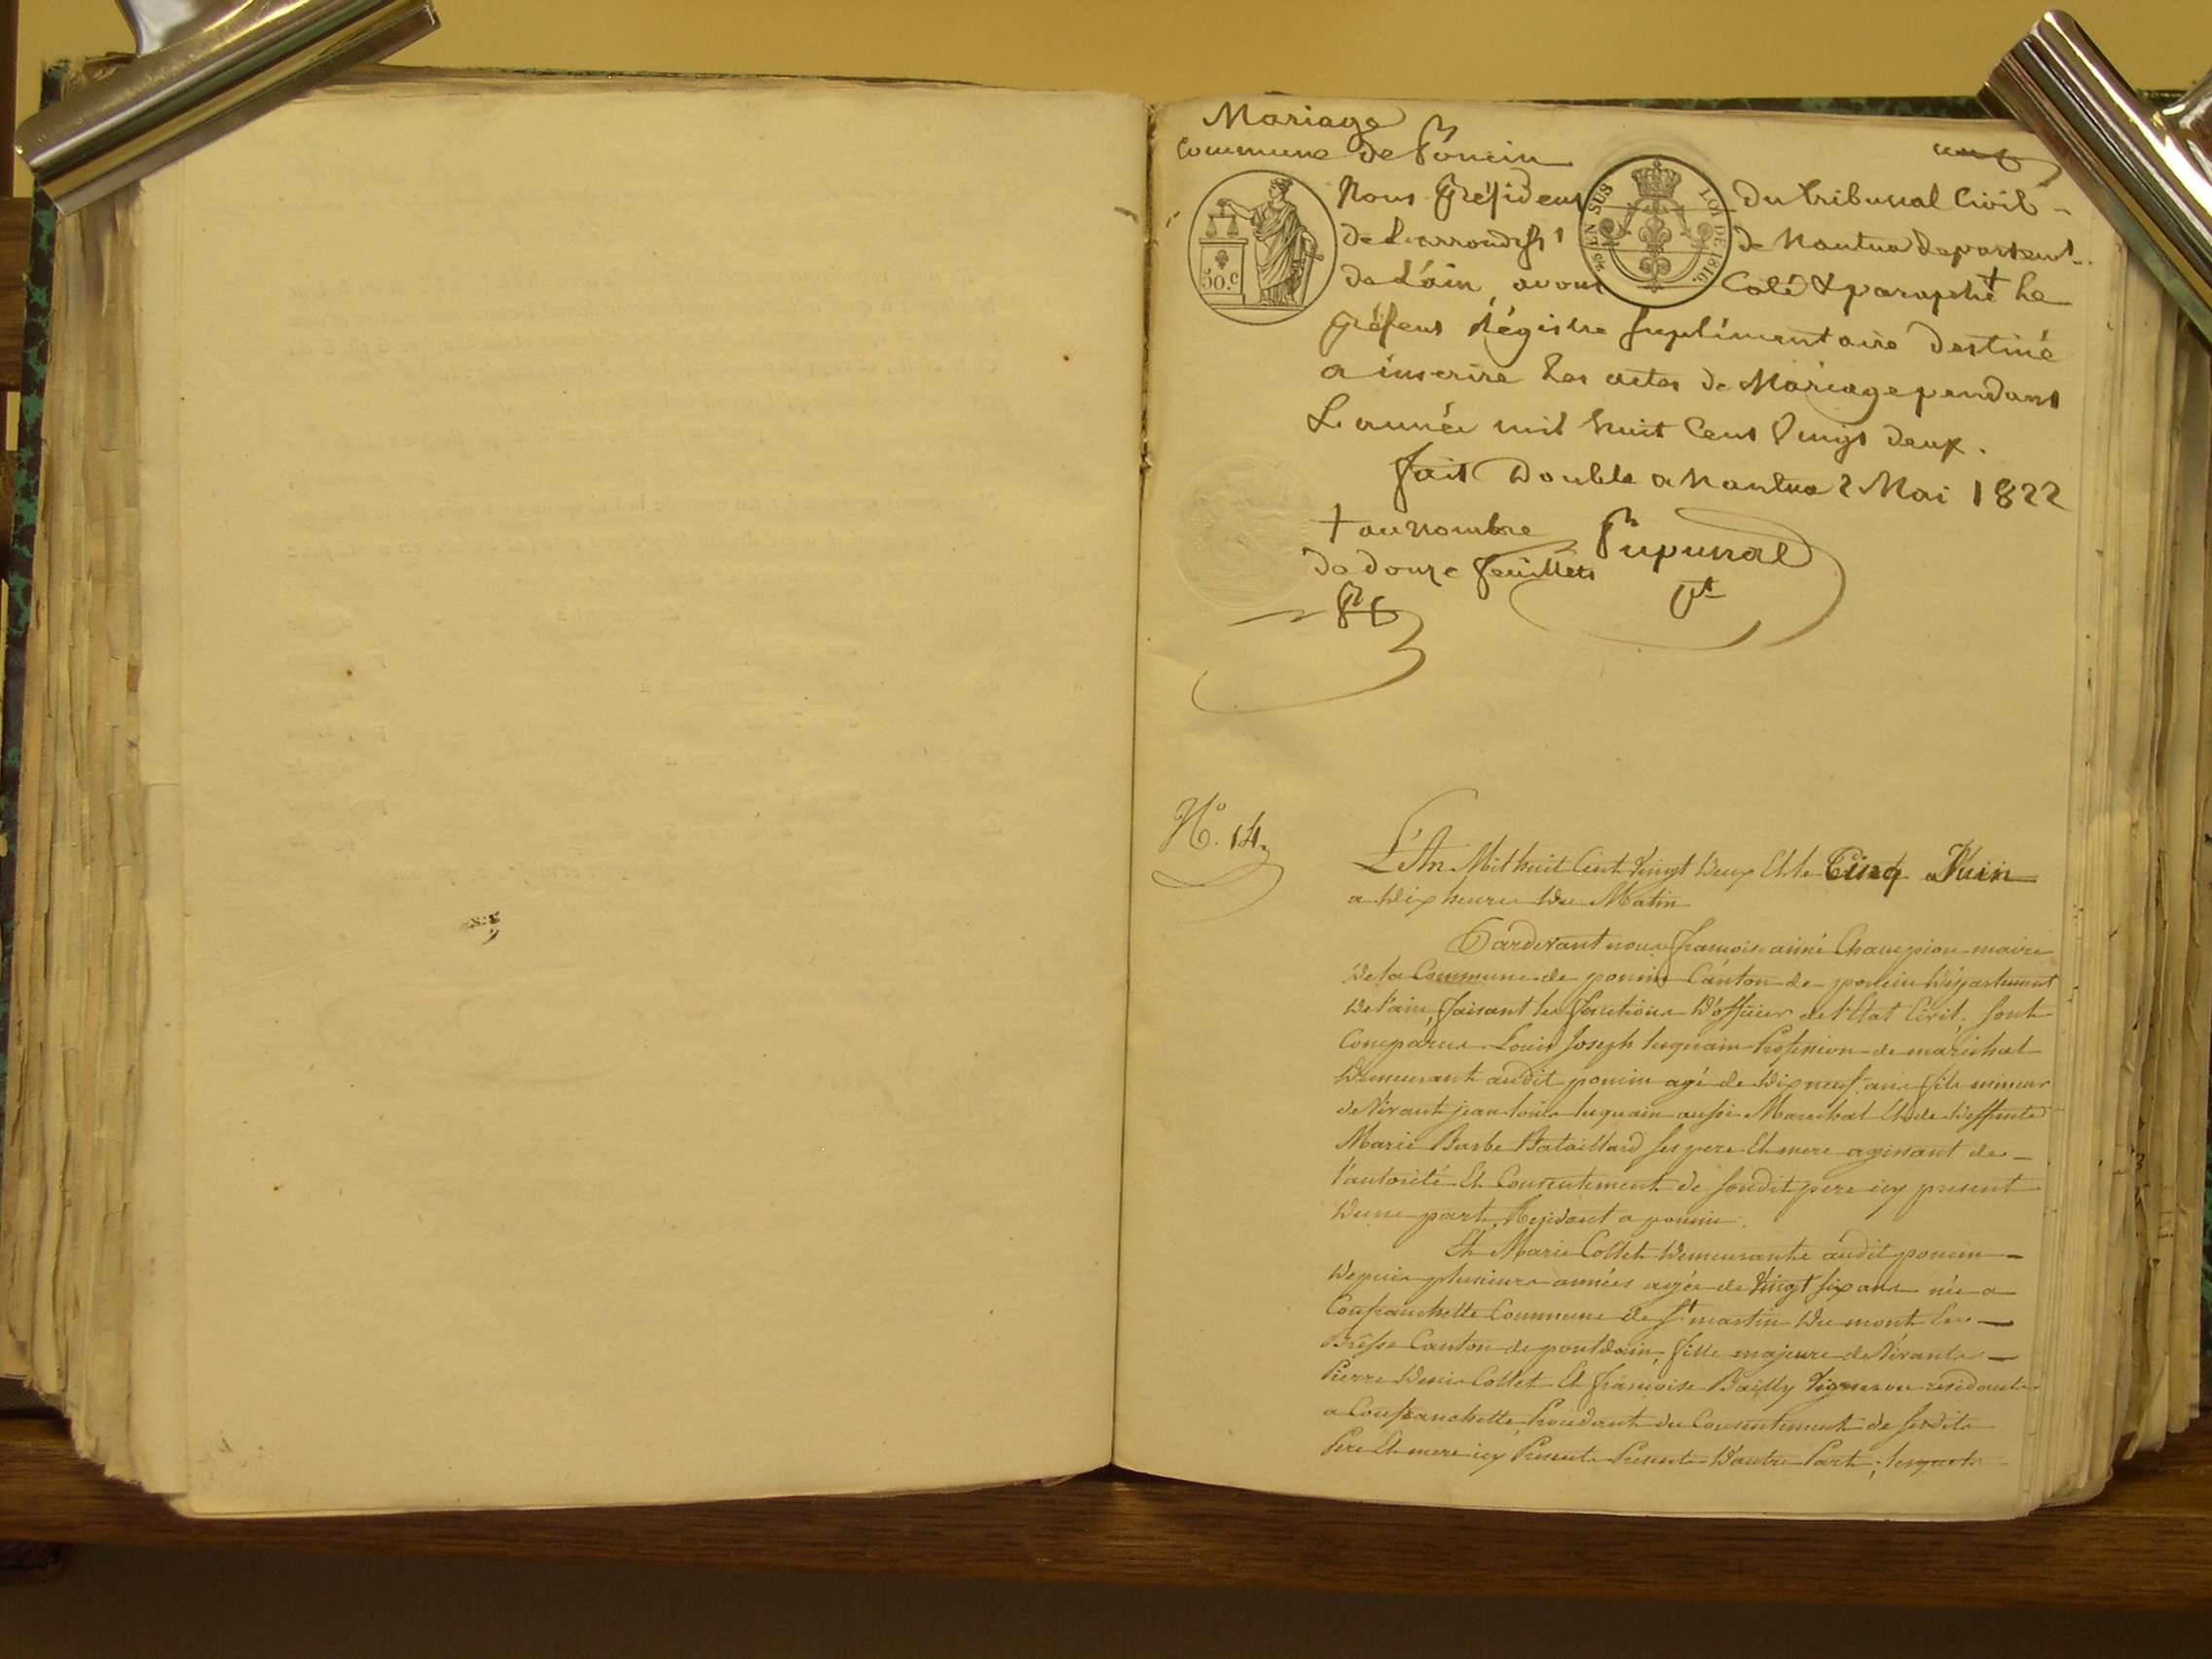 Mariage
Commune de Poncin
un
Nous Président du tribunal Civil
de L'arrondist de Nantua Departemt
de L'ain, avons Coté & paraphé + Le
présent Régistre suplémentaire Destiné
a inscrire Les actes de Mariage pendant
L'année mil huit Cent Vingt deux.
fait Double a Nantua 2 Mai 1822
+ au nombre
de douze feuillets
Pt
50.c
EN SUS
LOI DE 1816.
No. 14.
L'An Mil huit Cent Vingt Deux Et le Cinq Juin
a Dix heures Du Matin
Pardevant nous françois aimé Champion maire
De la Commune de poncin Canton de poncin Département
De l'ain, faisant les fonctions D'officier de l'Etat Civil, sont
Comparus Louis Joseph luquain Profession de maréchal
Demeurant audit poncin agé de Dix neuf ans fils mineur
de Vivant jean louis luquain aussi Marechal Et de Deffunte
Marie Barbe Bataillard ses pere Et mere agissant de
l'autorité Et Consentement de sondit pere icy present
D'une part, Residant a poncin.
Et Marie Collet Demeurante audit poncin
Depuis plusieurs années agée de Vingt six ans née a
Confranchette Commune de St martin Du mont En
Bresse Canton de pontdain, fille majeure de Vivants
Pierre Denis Collet Et françoise Bailly Vigneron residants
a Confranchette, Procedant du Consentement de sesdits
Pere Et mere icy Presents Presents D'autre Part; lesquels